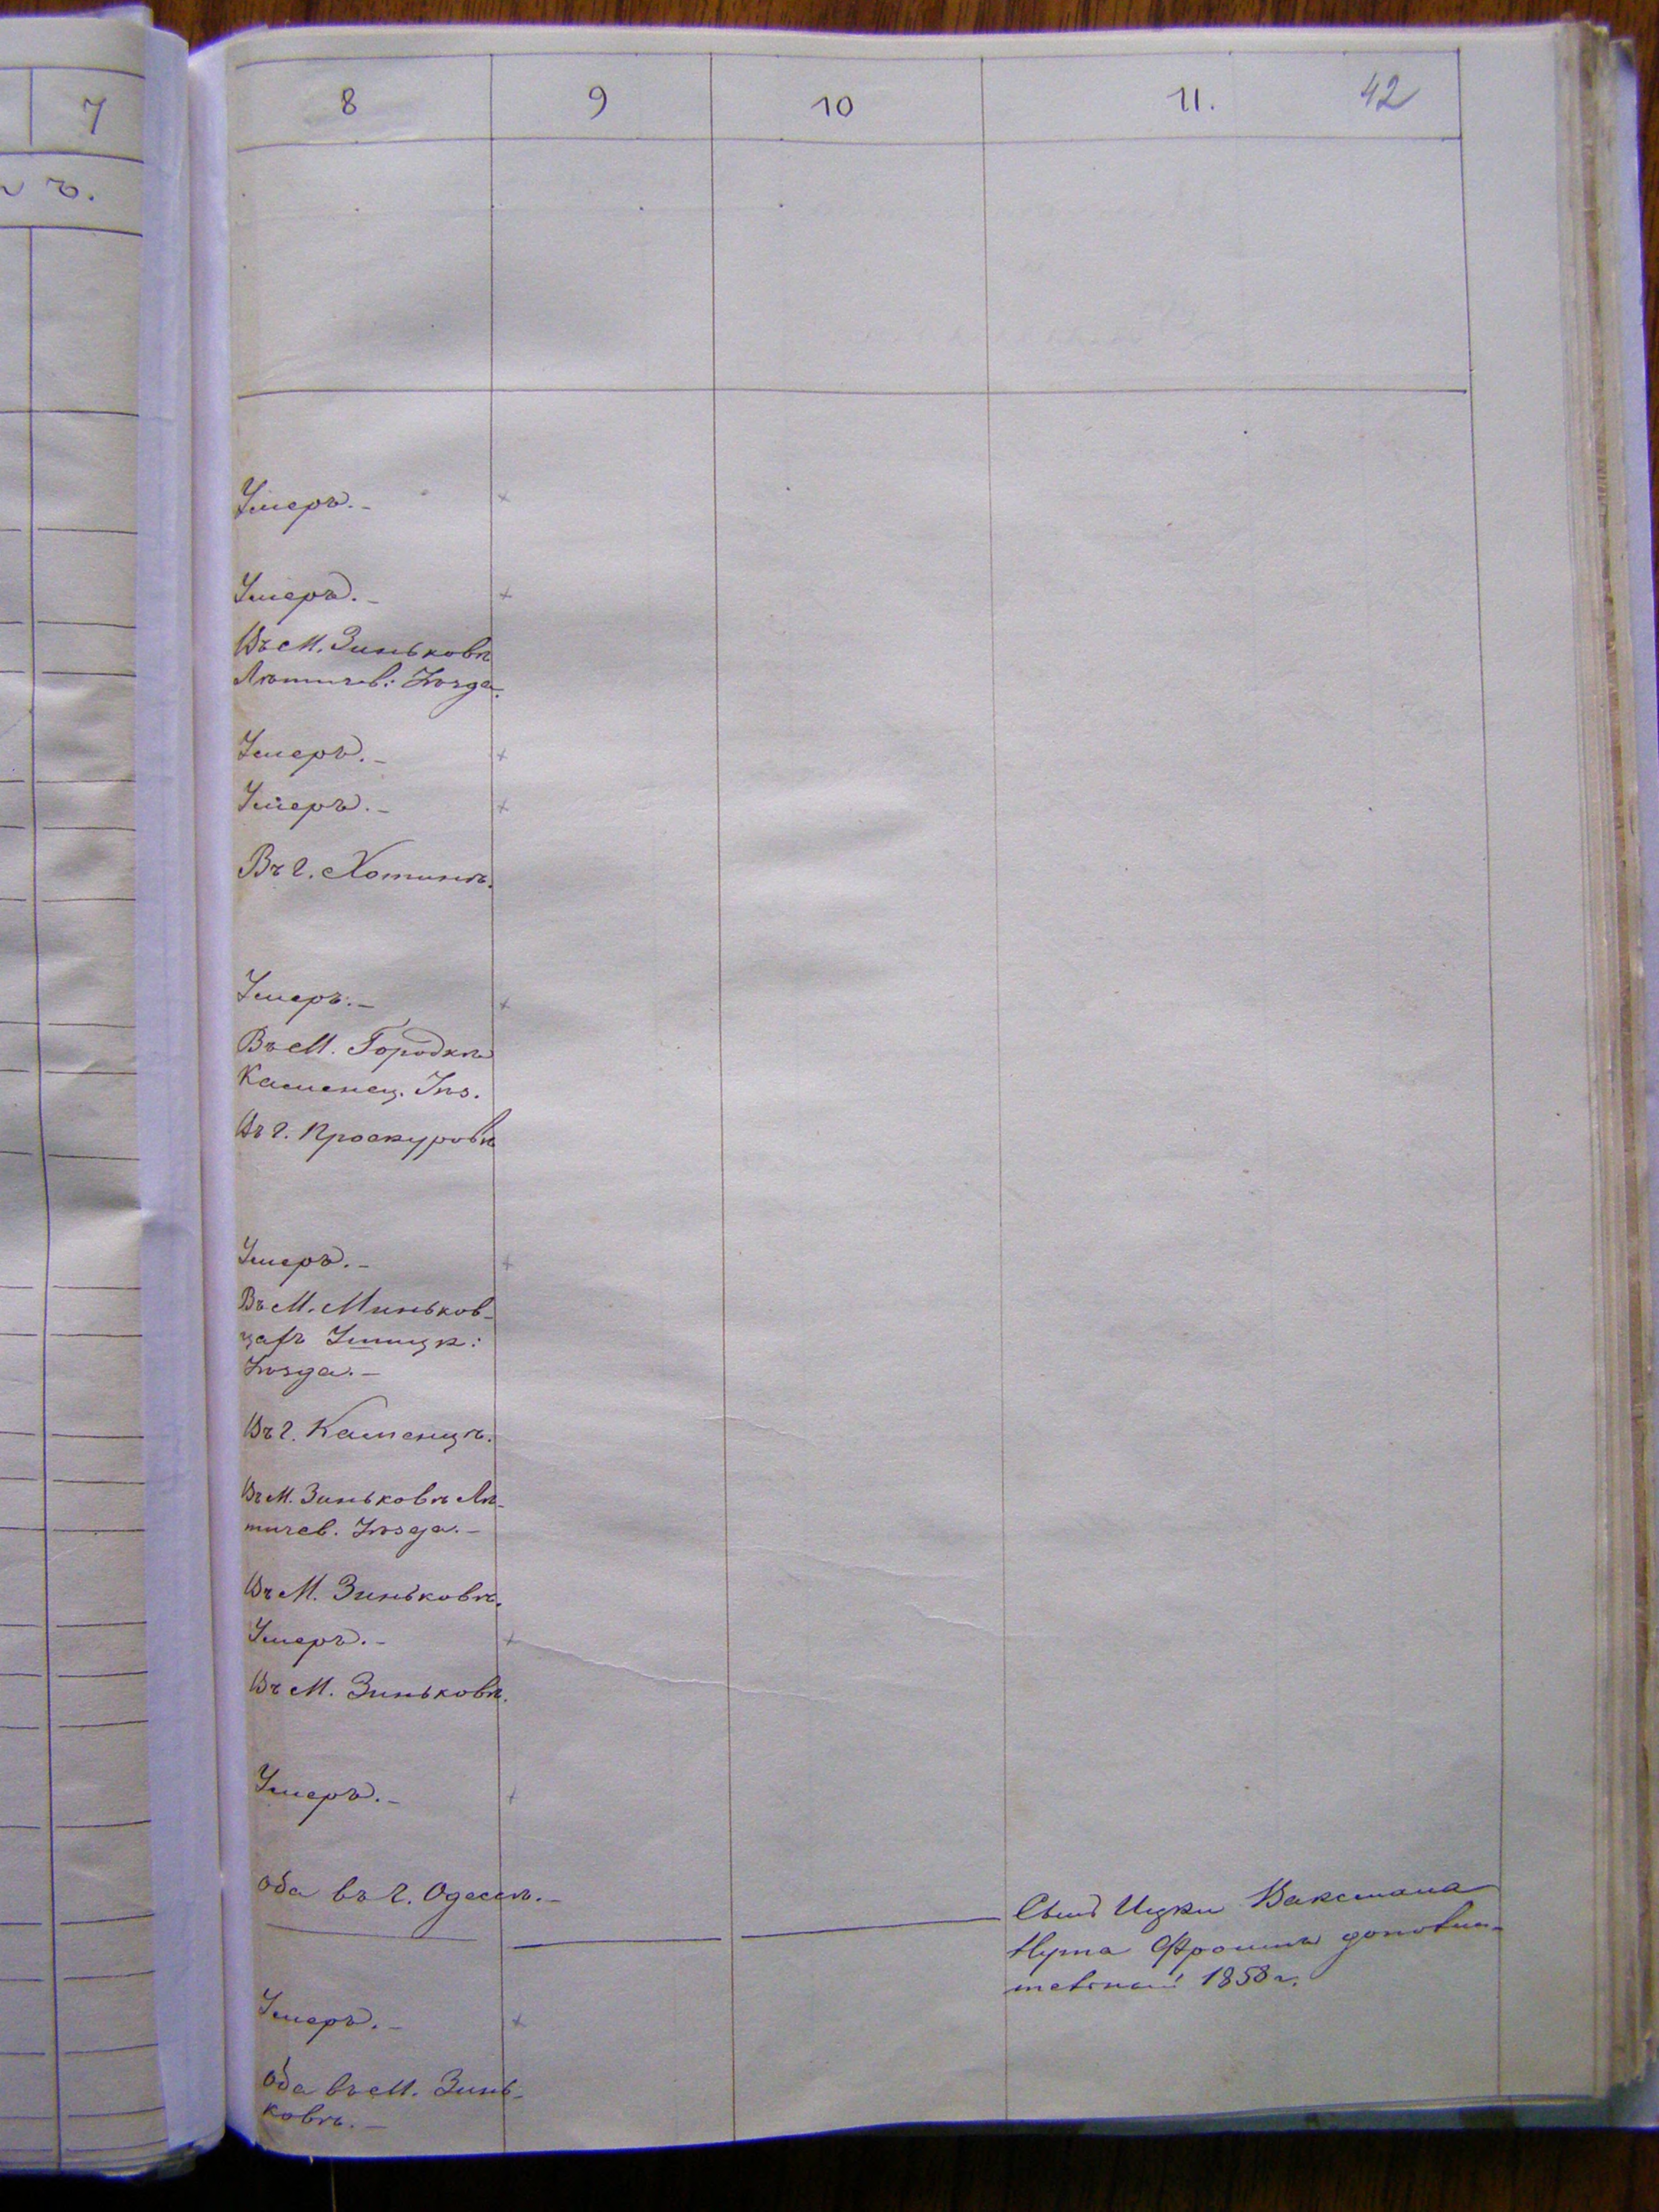 7
ъ.
8 9 10 11. 42
Умеръ.-
Умеръ.-
Въ М. Зиньковѣ
Лѣтичев: Уѣзда.
Умеръ.-
Умеръ.-
Въ г. Хотинѣ.
Умеръ.-
Въ М. Городкѣ
Каменец. Уѣз.
Въ г. Проскуровѣ
Умеръ.-
Въ М. Миньков-
цахъ Ушицк:
Уѣзда.-
Въ г. Каменцѣ.
Въ М. Зиньковѣ Лѣ-
тичев. Уѣзда.-
Въ М. Зиньковѣ.
Умеръ.-
Въ М. Зиньковѣ.
Умеръ.-
Оба въ г. Одессѣ.-
Сынъ Ицки Ваксмана
Нута Фроимъ
1858 г.
Умеръ.-
Оба въ М. Зинь-
ковѣ.-